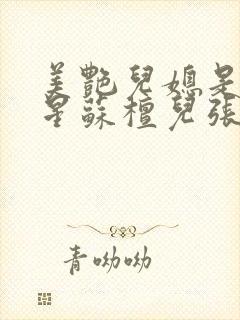 美艷兒媳是
星蘇檀兒張
青呦呦